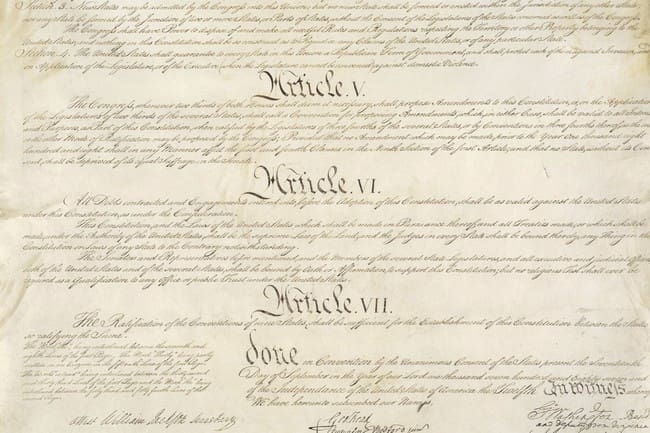 Section. 3. New States may be admitted by the Congress into this Union; but no new State shall be formed or erected within the Jurisdiction of any other State;
nor any State be formed by the Junction of two or more States, or Parts of States, without the Consent of the Legislatures of the States concerned as well as of the Congress.
The Congress shall have Power to dispose of and make all needful Rules and Regulations respecting the Territory or other Property belonging to the
United States; and nothing in this Constitution shall be so construed as to Prejudice any Claims of the United States, or of any particular State.
Section. 4. The United States shall guarantee to every State in this Union a Republican Form of Government, and shall protect each of them against Invasion; and
on Application of the Legislature, or of the Executive (when the Legislature cannot be convened) against domestic Violence.
Article. V.
The Congress, whenever two thirds of both Houses shall deem it necessary, shall propose Amendments to this Constitution, or, on the Application
of the Legislatures of two thirds of the several States, shall call a Convention for proposing Amendments, which, in either Case, shall be valid to all Intents
and Purposes, as Part of this Constitution, when ratified by the Legislatures of three fourths of the several States, or by Conventions in three fourths thereof, as the
other Mode of Ratification may be proposed by the Congress; Provided that no Amendment which may be made prior to the Year One thousand eight
hundred and eight shall in any Manner affect the first and fourth Clauses in the Ninth Section of the first Article; and that no State, without its Con
sent, shall be deprived of its equal Suffrage in the Senate.
Article. VI.
All Debts contracted and Engagements entered into, before the Adoption of this Constitution, shall be as valid against the United States
under this Constitution, as under the Confederation.
This Constitution, and the Laws of the United States which shall be made in Pursuance thereof; and all Treaties made, or which shall be
made, under the Authority of the United States, shall be the supreme Law of the Land; and the Judges in every State shall be bound thereby, any Thing in the
Constitution or Laws of any State to the Contrary notwithstanding.
The Senators and Representatives before mentioned, and the Members of the several State Legislatures, and all executive and judicial Officers,
both of the United States and of the several States, shall be bound by Oath or Affirmation, to support this Constitution; but no religious Test shall ever be
required as a Qualification to any Office or public Trust under the United States.
Article. VII.
The Ratification of the Conventions of nine States, shall be sufficient for the Establishment of this Constitution between the States
so ratifying the Same.
The Word, "the," being interlined between the seventh and
eighth Lines of the first Page, The Word "Thirty" being partly
written on an Erazure in the fifteenth Line of the first Page,
done in Convention by the Unanimous Consent of the States present the Seventeenth
Day of September in the Year of our Lord one thousand seven hundred and Eighty seven and
of the Independance of the United States of America the Twelfth In witness
We have hereunto subscribed our Names,
Attest William Jackson Secretary
Geo Read
Go Washington
and deputy from Virginia